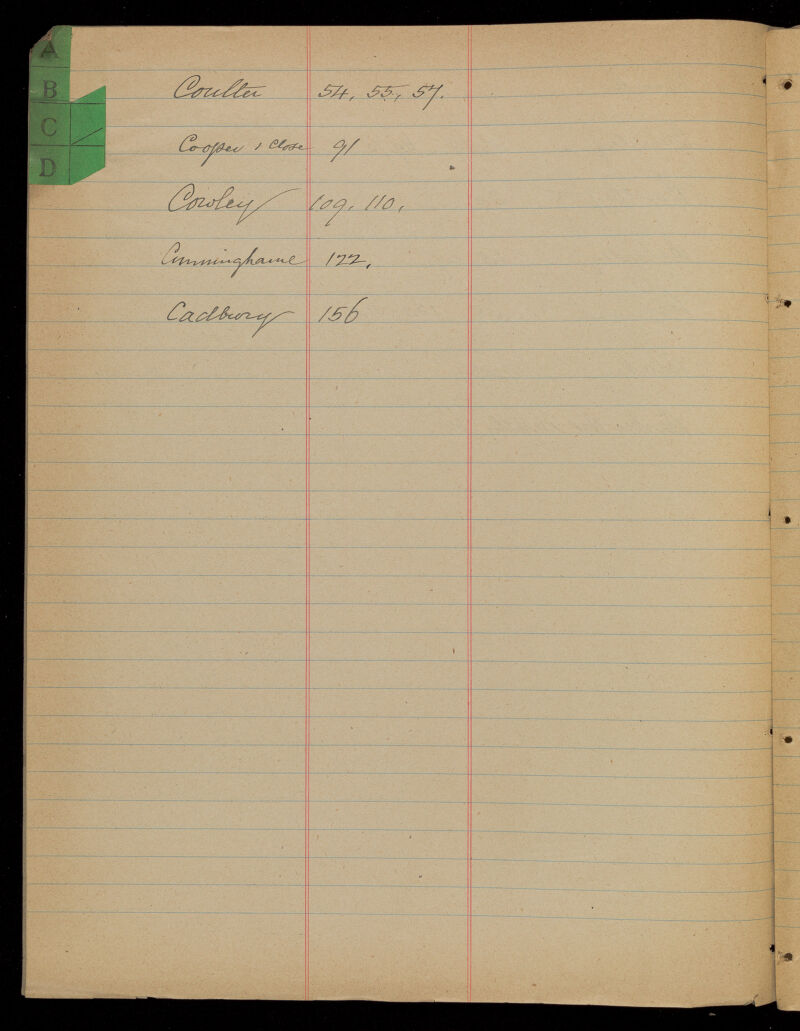 A
B
C
D
Coulter 54, 55, 57.
Cooper & Close 91
Cowley 109, 110,
Cunninghame 122,
Cadbury 156